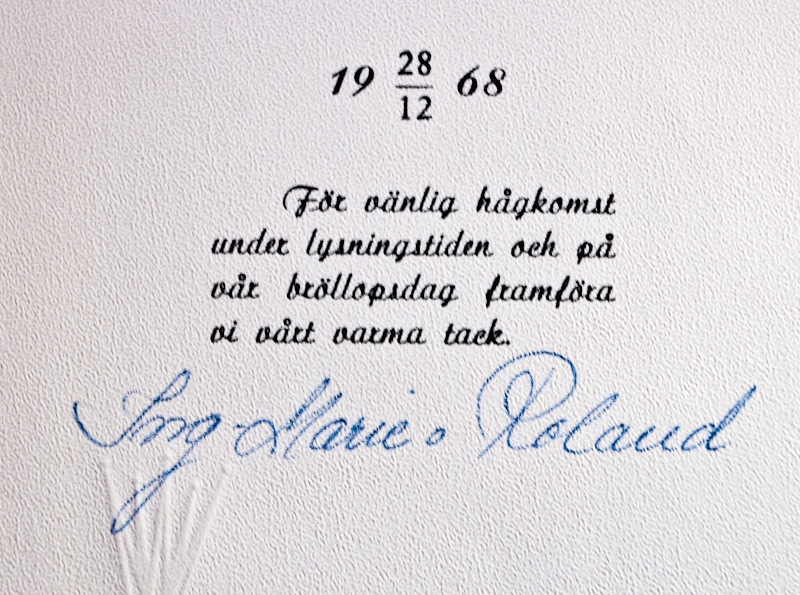 19 28/12 68
För vänlig hågkomst
under lysningstiden och på
vår bröllopsdag framföra
vi vårt varma tack.
Ing-Marie o Roland